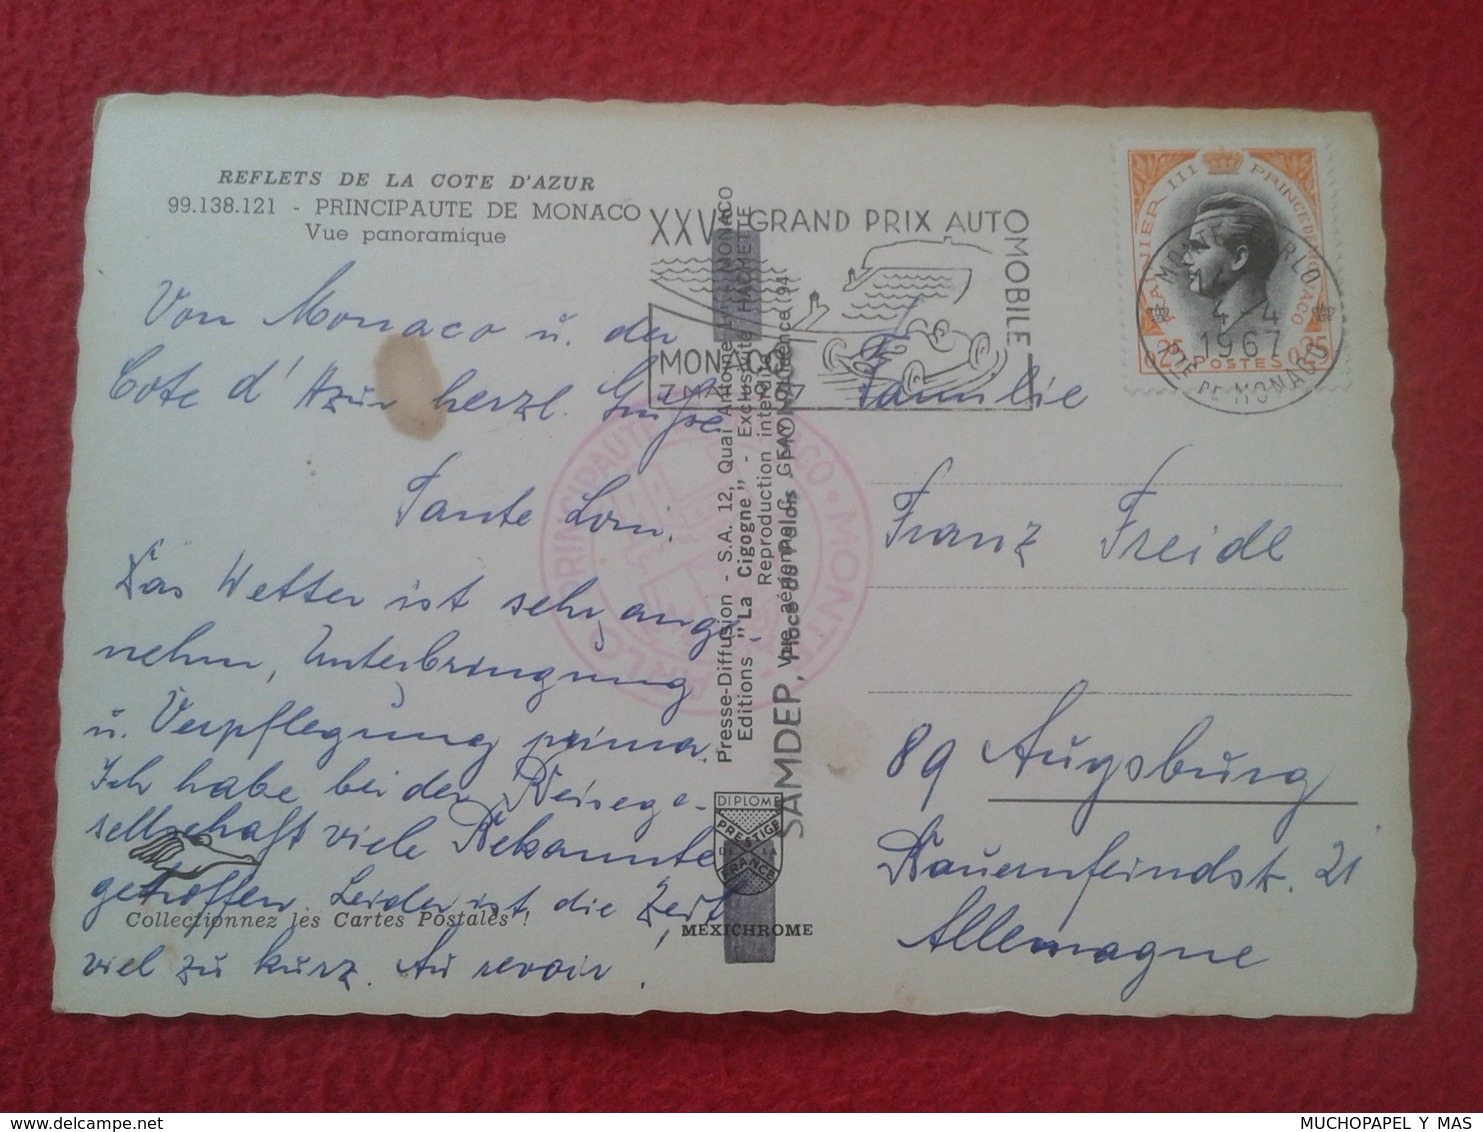 REFLETS DE LA COTE D'AZUR
99.138.121 - PRINCIPAUTE DE MONACO
Vue panoramique
Von Monaco u. der
Cote d'Azur herzl. Grüße
Tante Loni.
Das Wetter ist sehr ange-
nehm, Unterbringung
u. Verpflegung prima.
Ich habe bei der Reisege-
sellschaft viele Bekannte
getroffen. Leider ist die Zeit
viel zu kurz. Au revoir.
Collectionnez les Cartes Postales !
GRAND PRIX AUTOMOBILE
MONACO
RAINIER III PRINCE DE MONACO
0,25 POSTES 0,25
MONTE CARLO
4-4
1967
PTE DE MONACO
PRINCIPAUTE
MONACO
Presse-Diffusion - S.A. 12, Quai Antoine 1er MONACO
Editions "La Cigogne" - Exclusivité HACHETTE
Reproduction interdite
SAMDEP, place du Palais MONACO
DIPLOME
PRESTIGE
DE LA
FRANCE
MEXICHROME
Familie
Franz Freidl
89 Augsburg
Bauernfeindstr. 21
Allemagne
MUCHOPAPEL Y MAS